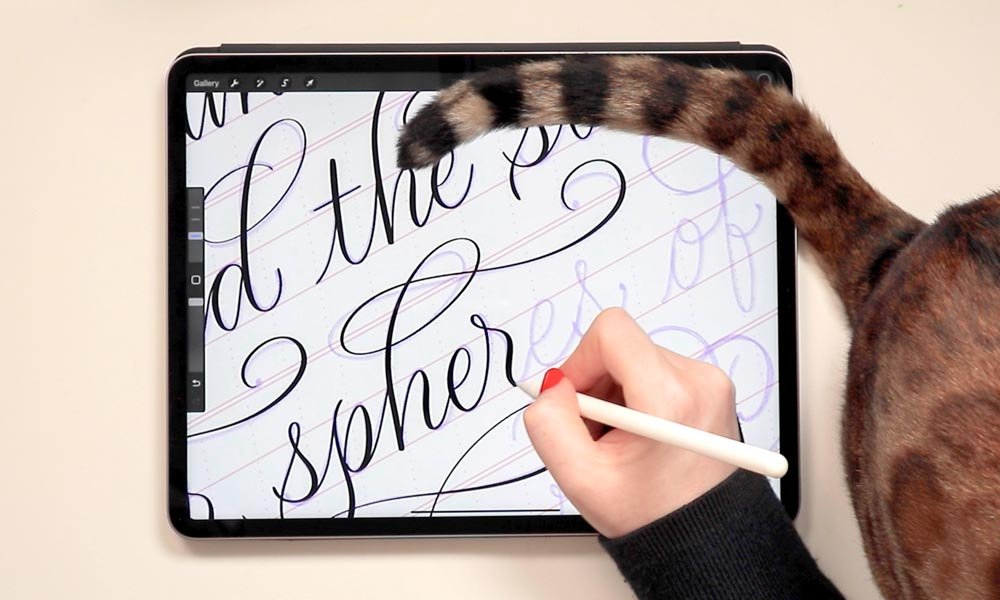 Gallery
d the
spheres of